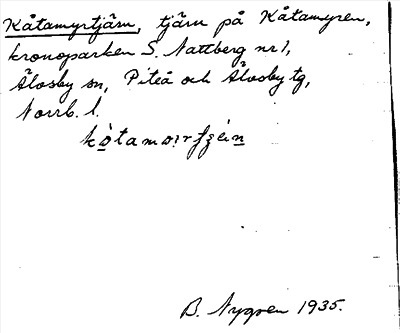 Kåtamyrtjärn, tjärn på Kåtamyren,
kronoparken S. Nattberg nr 1,
Älvsby sn, Piteå och Älvsby tg,
Norrb. l.
B. Nygren 1935.